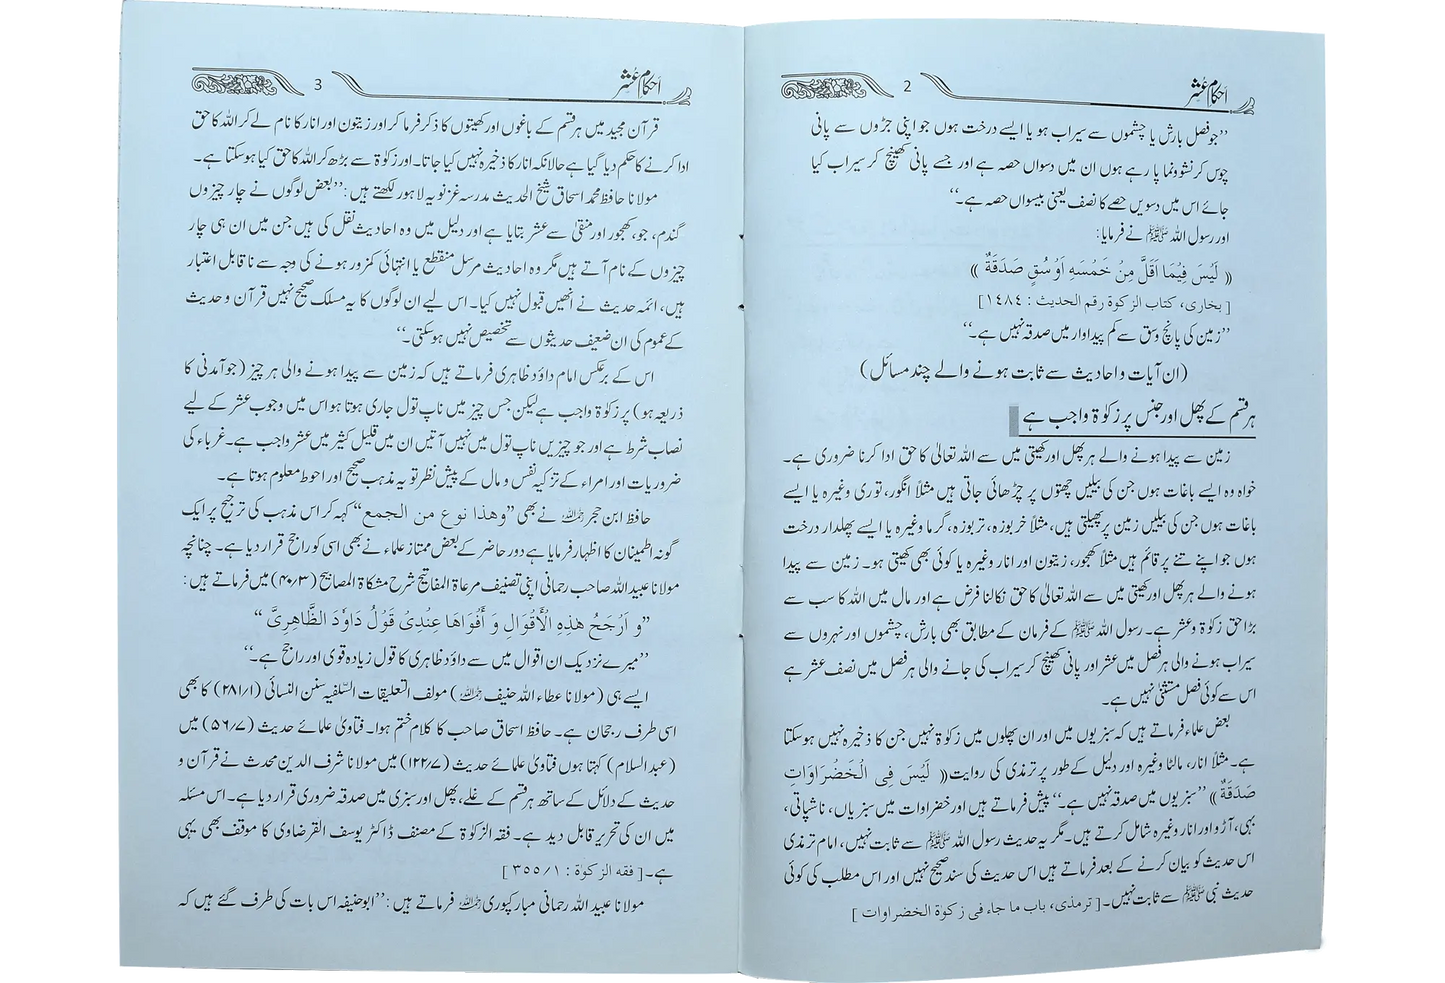 احکامِ عُشر
2
’’جو فصل بارش یا چشموں سے سیراب ہو یا ایسے درخت ہوں جو اپنی جڑوں سے پانی
چوس کر نشوونما پا رہے ہوں ان میں دسواں حصہ ہے اور جسے پانی کھینچ کر سیراب کیا
جائے اس میں دسویں حصے کا نصف یعنی بیسواں حصہ ہے۔‘‘
اور رسول اللہ ﷺ نے فرمایا:
(( لَیْسَ فِیْمَا اَقَلَّ مِنْ خَمْسَهِ اَوْ سُقٍ صَدَقَةٌ ))
[ بخاری، کتاب الزکوة رقم الحدیث : ١٤٨٤]
’’زمین کی پانچ وسق سے کم پیداوار میں صدقہ نہیں ہے۔‘‘
(ان آیات و احادیث سے ثابت ہونے والے چند مسائل)
ہر قسم کے پھل اور جنس پر زکوۃ واجب ہے
زمین سے پیدا ہونے والے ہر پھل اور کھیتی میں سے اللہ تعالیٰ کا حق ادا کرنا ضروری ہے۔
خواہ وہ ایسے باغات ہوں جن کی بیلیں چھتوں پر چڑھائی جاتی ہیں مثلاً انگور، توری وغیرہ یا ایسے
باغات ہوں جن کی بیلیں زمین پر پھیلتی ہیں، مثلاً خربوزہ، تربوزہ، گرما وغیرہ یا ایسے پھلدار درخت
ہوں جو اپنے تنے پر قائم ہیں مثلاً کھجور، زیتون اور انار وغیرہ یا کوئی بھی کھیتی ہو۔ زمین سے پیدا
ہونے والے ہر پھل اور کھیتی میں سے اللہ تعالیٰ کا حق نکالنا فرض ہے اور مال میں اللہ کا سب سے
بڑا حق زکوٰۃ و عشر ہے۔ رسول اللہ ﷺ کے فرمان کے مطابق بھی بارش، چشموں اور نہروں سے
سیراب ہونے والی ہر فصل میں عشر اور پانی کھینچ کر سیراب کی جانے والی ہر فصل میں نصف عشر ہے
اس سے کوئی فصل مستثنیٰ نہیں ہے۔
بعض علماء فرماتے ہیں کہ سبزیوں میں اور ان پھلوں میں زکوۃ نہیں جن کا ذخیرہ نہیں ہوسکتا
ہے۔ مثلاً انار، مالٹا وغیرہ اور دلیل کے طور پر ترمذی کی روایت (( لَیْسَ فِی الْخَضْرَاوَاتِ
صَدَقَةٌ )) ’’سبزیوں میں صدقہ نہیں ہے۔‘‘ پیش فرماتے ہیں اور خضراوات میں سبزیاں، ناشپاتی،
بہی، آڑو اور انار وغیرہ شامل کرتے ہیں۔ مگر یہ حدیث رسول اللہ ﷺ سے ثابت نہیں، امام ترمذی
اس حدیث کو بیان کرنے کے بعد فرماتے ہیں اس حدیث کی سند صحیح نہیں اور اس مطلب کی کوئی
حدیث نبی ﷺ سے ثابت نہیں۔ [ ترمذی، باب ما جاء فی زکوة الخضراوات ]
احکامِ عُشر
3
قرآن مجید میں ہر قسم کے باغوں اور کھیتوں کا ذکر فرما کر اور زیتون اور انار کا نام لے کر اللہ کا حق
ادا کرنے کا حکم دیا گیا ہے حالانکہ انار کا ذخیرہ نہیں کیا جاتا۔ اور زکوۃ سے بڑھ کر اللہ کا حق کیا ہو سکتا ہے۔
مولانا حافظ محمد اسحاق شیخ الحدیث مدرسہ غزنویہ لاہور لکھتے ہیں: ’’بعض لوگوں نے چار چیزوں
گندم، جو، کھجور اور منقیٰ سے عشر بتایا ہے اور دلیل میں وہ احادیث نقل کی ہیں جن میں ان ہی چار
چیزوں کے نام آتے ہیں مگر وہ احادیث مرسل منقطع یا انتہائی کمزور ہونے کی وجہ سے نا قابل اعتبار
ہیں، ائمہ حدیث نے انھیں قبول نہیں کیا۔ اس لیے ان لوگوں کا یہ مسلک صحیح نہیں قرآن و حدیث
کے عموم کی ان ضعیف حدیثوں سے تخصیص نہیں ہوسکتی۔‘‘
اس کے برعکس امام داؤد ظاہری فرماتے ہیں کہ زمین سے پیدا ہونے والی ہر چیز (جو آمدنی کا
ذریعہ ہو) پر زکوٰۃ واجب ہے لیکن جس چیز میں ناپ تول جاری ہوتا ہو اس میں وجوب عشر کے لیے
نصاب شرط ہے اور جو چیزیں ناپ تول میں نہیں آتیں ان میں قلیل کثیر میں عشر واجب ہے۔ غرباء کی
ضروریات اور امراء کے تزکیہ نفس و مال کے پیش نظر تو یہ مذہب صحیح اور احوط معلوم ہوتا ہے۔
حافظ ابن حجر رحمہ اللہ نے بھی ’’وهذا نوع من الجمع‘‘ کہہ کر اس مذہب کی ترجیح پر ایک
گونہ اطمینان کا اظہار فرمایا ہے دور حاضر کے بعض ممتاز علماء نے بھی اسی کو راجح قرار دیا ہے۔ چنانچہ
مولانا عبیداللہ صاحب رحمانی اپنی تصنیف مرعاۃ المفاتیح شرح مشکاۃ المصابیح (۴۰/۳) میں فرماتے ہیں:
’’و اَرْجَحُ هٰذِهِ الْأَقْوَالِ وَ أَقْوَاهَا عِنْدِیْ قَوْلُ دَاوٗدَ الظَّاهِرِیِّ ‘‘
’’میرے نزدیک ان اقوال میں سے داؤد ظاہری کا قول زیادہ قوی اور راجح ہے۔‘‘
ایسے ہی (مولانا عطاء اللہ حنیف رحمہ اللہ) مولف التعلیقات السلفیہ سنن النسائی (۲۸۱/۱) کا بھی
اسی طرف رجحان ہے۔ حافظ اسحاق صاحب کا کلام ختم ہوا۔ فتاویٰ علمائے حدیث (۵۶/۷) میں
(عبدالسلام) کہتا ہوں فتاویٰ علمائے حدیث (۱۲۲/۷) میں مولانا شرف الدین محدث نے قرآن و
حدیث کے دلائل کے ساتھ ہر قسم کے غلے، پھل اور سبزی میں صدقہ ضروری قرار دیا ہے۔ اس مسئلہ
میں ان کی تحریر قابل دید ہے۔ فقہ الزکوۃ کے مصنف ڈاکٹر یوسف القرضاوی کا موقف بھی یہی
ہے۔ [ فقه الزکوة : ۳۵۵/۱ ]
مولانا عبید اللہ رحمانی مبارکپوری رحمہ اللہ فرماتے ہیں: ’’ابو حنیفہ اس بات کی طرف گئے ہیں کہ